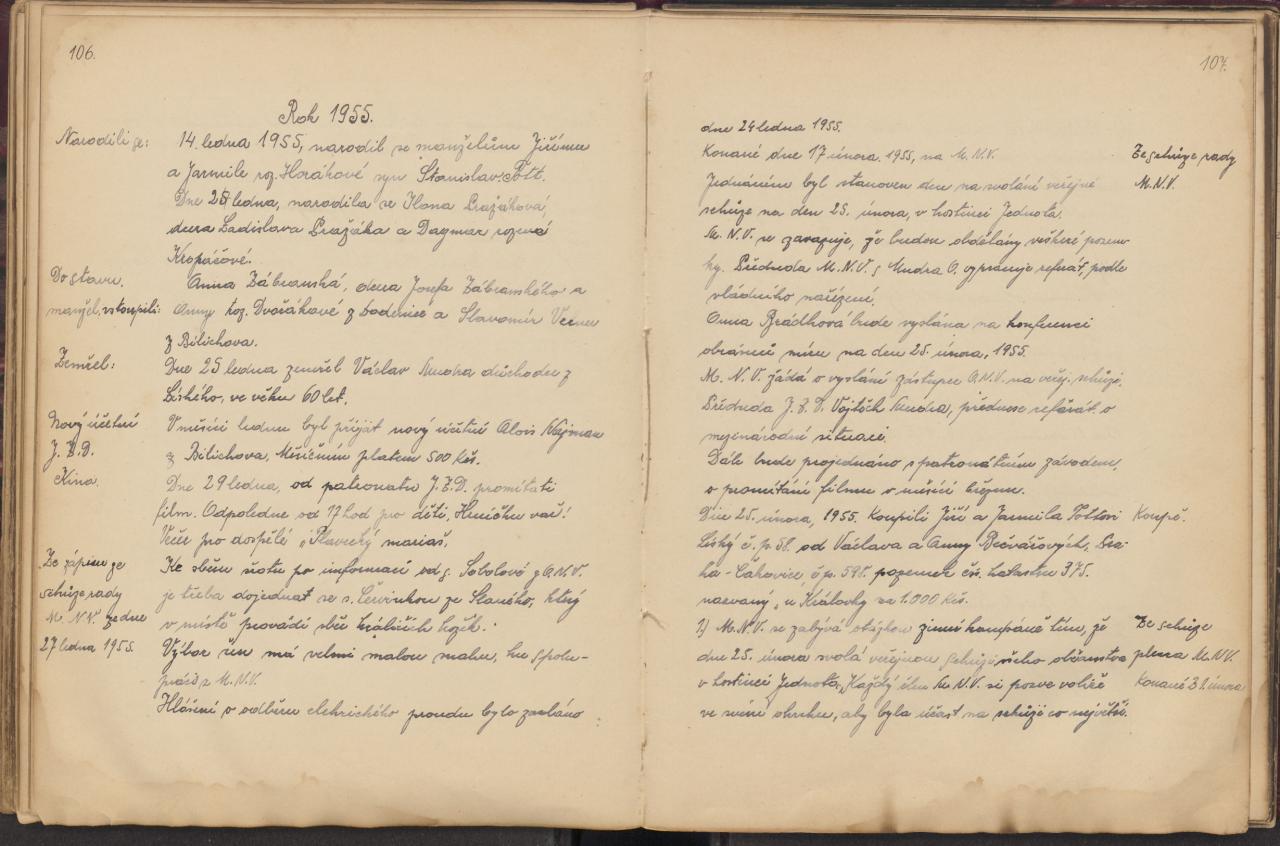 106.
Rok 1955.
Narodili se: 14. ledna 1955, narodil se manželům Jiřímu
a Jarmile roz. Horákové syn Stanislav Tótt.
Dne 25 ledna, narodila se Ilona Pražáková,
dcera Ladislava Pražáka a Dagmar rozené
Kropáčové.
Do stavu Anna Zábranská, dcera Josefa Zábranského a
manžel. vstoupili: Anny roz. Dvořákové z a Slavomír
z Bilichova.
Zemřel: Dne 25 ledna zemřel Václav důchodce z
Liského, ve věku 60 let.
Nový účetní V měsíci lednu byl přijat nový účetní Alois Najman
J.Z.D. z Bilichova, Měsíčním platem 500 Kčs.
Kina. Dne 29 ledna, od patronatu J.Z.D. promítati
film. Odpoledne od 17 hod pro děti, Hrníčku vař!
Večer pro dospělé „Slavečký mariaš,
Ze zápisu ze Ke sběru šrotu po informaci od s. Sobolové z O.N.V.
schůze rady je třeba dojednat se s. Červinkou ze Slaného, který
M.N.V. ze dne v místě provádí sběr králičích kožek.
27 ledna 1955. Výbor žen má velmi malou snahu, ku spolu-
práci s M.N.V.
Hlášení o odběru elektrického proudu bylo zasláno
107.
dne 24 ledna 1955.
Konané dne 17 února. 1955, na M.N.V. Ze schůze rady
Jednáním byl stanoven den na svolání veřejné M.N.V.
schůze na den 25. února, v hostinci Jednota.
M.N.V. se zavazuje, že budou obdělány veškeré pozem-
ky. Předseda M.N.V. s Mudra O. vypracuje referát, podle
vládního nařízení.
Anna Brádková bude vyslána na konferenci
obránců míru na den 25. února, 1955.
M.N.V. žádá o vyslání zástupce O.N.V. na veřej. schůzi.
Předseda J.Z.D. Vojtěch přednese referát o
mezinárodní situaci.
Dále bude projednáno s patronátním závodem,
o promítání filmu v měsíci březnu.
Dne 25. února, 1955. Koupili Jiří a Jarmila Tóttovi Koupě.
Liský č.p. 58. od Václava a Anny Bečvářových, Pra-
ha-Čakovice, čp. 598. pozemek čís. katastru 375.
nazvaný „u Královky za 1.000 Kčs.
1) M.N.V. se zabývá otázkou zimní kampáně tím, že Ze schůze
dne 25. února svolá veřejnou schůzi všeho občanstva plena M.N.V.
v hostinci Jednota, Každý člen M.N.V. si pozve voliče Konané února
ve svém okrsku, aby byla účast na schůzi co největší.